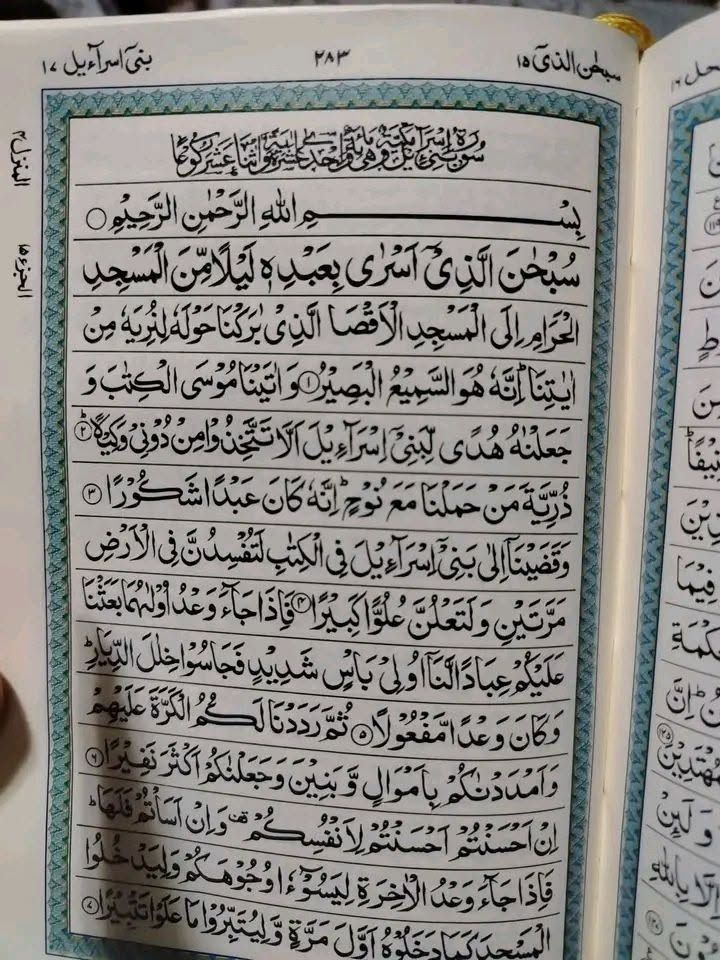 سبحٰن الذیٓ ١٥
٢٨٣
بنیٓ اسرآءیل ١٧
بِسْمِ اللهِ الرَّحْمٰنِ الرَّحِيْمِ
سُبْحٰنَ الَّذِیْۤ اَسْرٰی بِعَبْدِهٖ لَيْلًا مِّنَ الْمَسْجِدِ
الْحَرَامِ اِلَی الْمَسْجِدِ الْاَقْصَا الَّذِیْ بٰرَكْنَا حَوْلَهٗ لِنُرِيَهٗ مِنْ
اٰيٰتِنَا ؕ اِنَّهٗ هُوَ السَّمِيْعُ الْبَصِيْرُ ۝١ وَ اٰتَيْنَا مُوْسَی الْكِتٰبَ وَ
جَعَلْنٰهُ هُدًی لِّبَنِیْۤ اِسْرَآءِيْلَ اَلَّا تَتَّخِذُوْا مِنْ دُوْنِیْ وَكِيْلًا ؕ۝٢
ذُرِّيَّةَ مَنْ حَمَلْنَا مَعَ نُوْحٍ ؕ اِنَّهٗ كَانَ عَبْدًا شَكُوْرًا ۝٣
وَقَضَيْنَاۤ اِلٰی بَنِیْۤ اِسْرَآءِيْلَ فِی الْكِتٰبِ لَتُفْسِدُنَّ فِی الْاَرْضِ
مَرَّتَيْنِ وَلَتَعْلُنَّ عُلُوًّا كَبِيْرًا ۝٤ فَاِذَا جَآءَ وَعْدُ اُوْلٰىهُمَا بَعَثْنَا
عَلَيْكُمْ عِبَادًا لَّنَاۤ اُولِیْ بَاْسٍ شَدِيْدٍ فَجَاسُوْا خِلٰلَ الدِّيَارِ ؕ
وَكَانَ وَعْدًا مَّفْعُوْلًا ۝٥ ثُمَّ رَدَدْنَا لَكُمُ الْكَرَّةَ عَلَيْهِمْ
وَاَمْدَدْنٰكُمْ بِاَمْوَالٍ وَّ بَنِيْنَ وَجَعَلْنٰكُمْ اَكْثَرَ نَفِيْرًا ۝٦
اِنْ اَحْسَنْتُمْ اَحْسَنْتُمْ لِاَنْفُسِكُمْ ۫ وَاِنْ اَسَاْتُمْ فَلَهَا ؕ
فَاِذَا جَآءَ وَعْدُ الْاٰخِرَةِ لِيَسُوْٓءٗا وُجُوْهَكُمْ وَلِيَدْخُلُوا
الْمَسْجِدَ كَمَا دَخَلُوْهُ اَوَّلَ مَرَّةٍ وَّلِيُتَبِّرُوْا مَا عَلَوْا تَتْبِيْرًا ۝٧
المنزل ٤
الجزء ١٥